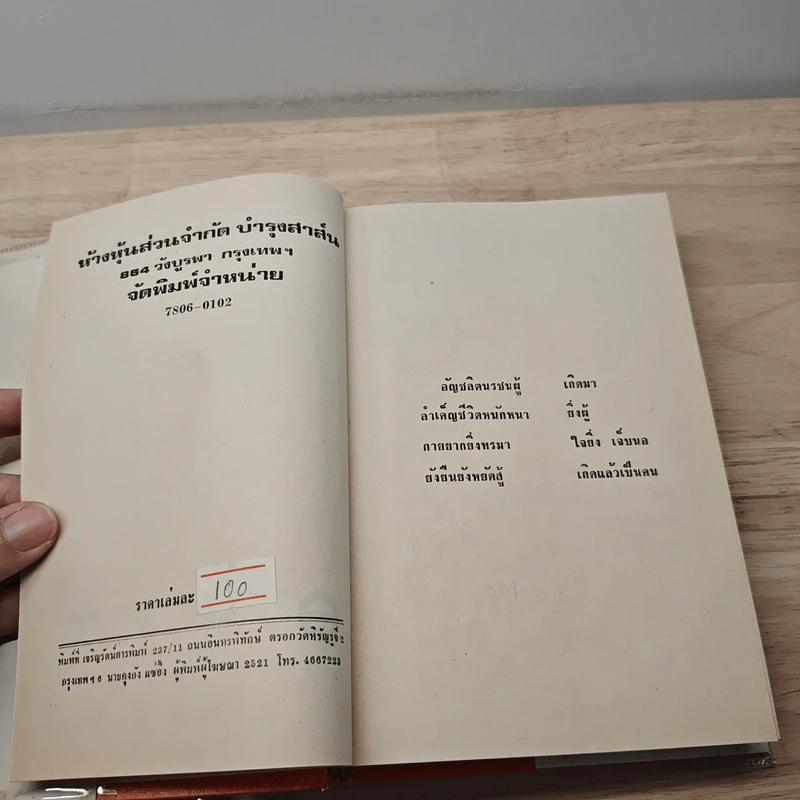 ห้างหุ้นส่วนจำกัด บำรุงสาส์น
884 วังบูรพา กรุงเทพฯ
จัดพิมพ์จำหน่าย
7806-0102
ราคาเล่มละ 100
พิมพ์ที่ เจริญรัตน์การพิมพ์ 237/11 ถนนอินทรพิทักษ์ ตรอกวัดหิรัญรูจี 2
กรุงเทพฯ 6 นายคุงกัง แซ่อึ้ง ผู้พิมพ์ผู้โฆษณา 2521 โทร. 4667223
อัญชลิตนรชนผู้ เกิดมา
ลำเค็ญชีวิตหนักหนา ยิ่งผู้
กายยากยิ่งทรมา ใจยิ่ง เจ็บนอ
ยังยืนยังหยัดสู้ เกิดแล้วเป็นคน